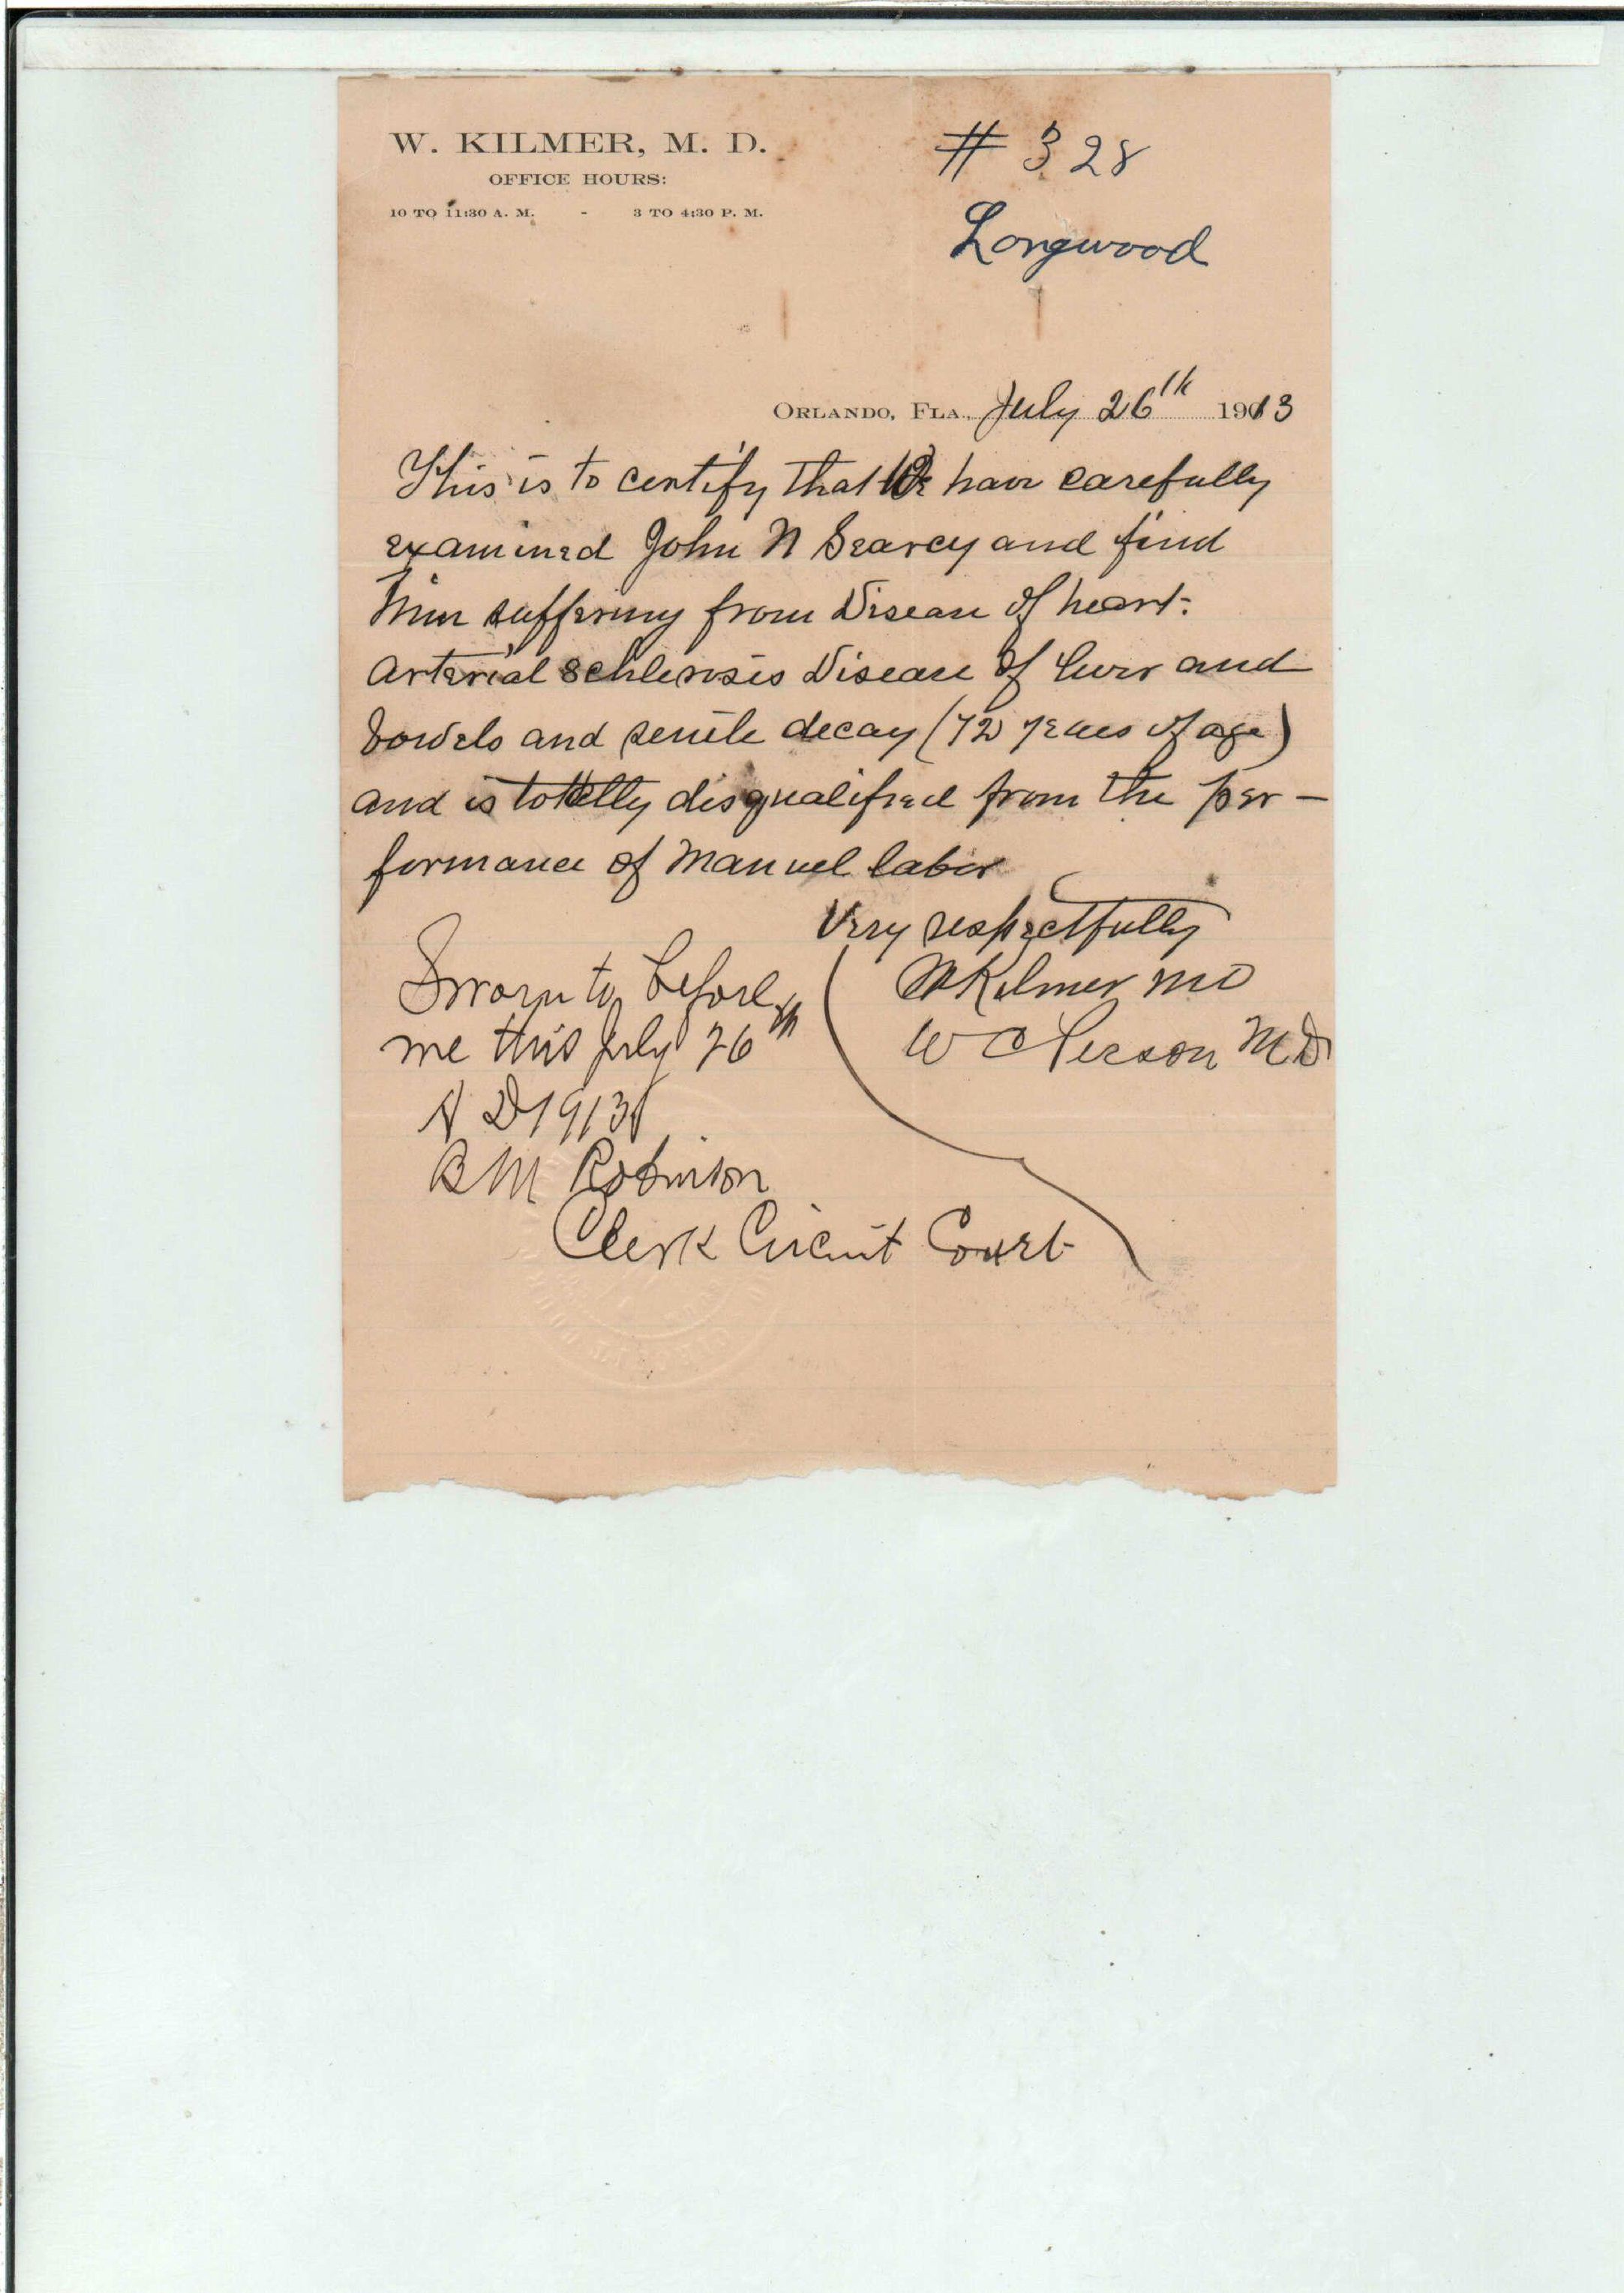 W. KILMER, M. D.
OFFICE HOURS:
10 TO 11:30 A. M. - 3 TO 4:30 P. M.
# 328
Longwood
ORLANDO, FLA., July 26th 1913
This is to certify that We have carefully
examined John N Searcy and find
him suffering from Disease of heart.
Arterial schlerosis Disease of liver and
bowels and senile decay (72 years of age)
and is totally disqualified from the per-
formance of manuel labor
Very respectfully
W Kilmer MD
W C Person MD
Sworn to before
me this July 26th
A D 1913
B M Robinson
Clerk Circuit Court